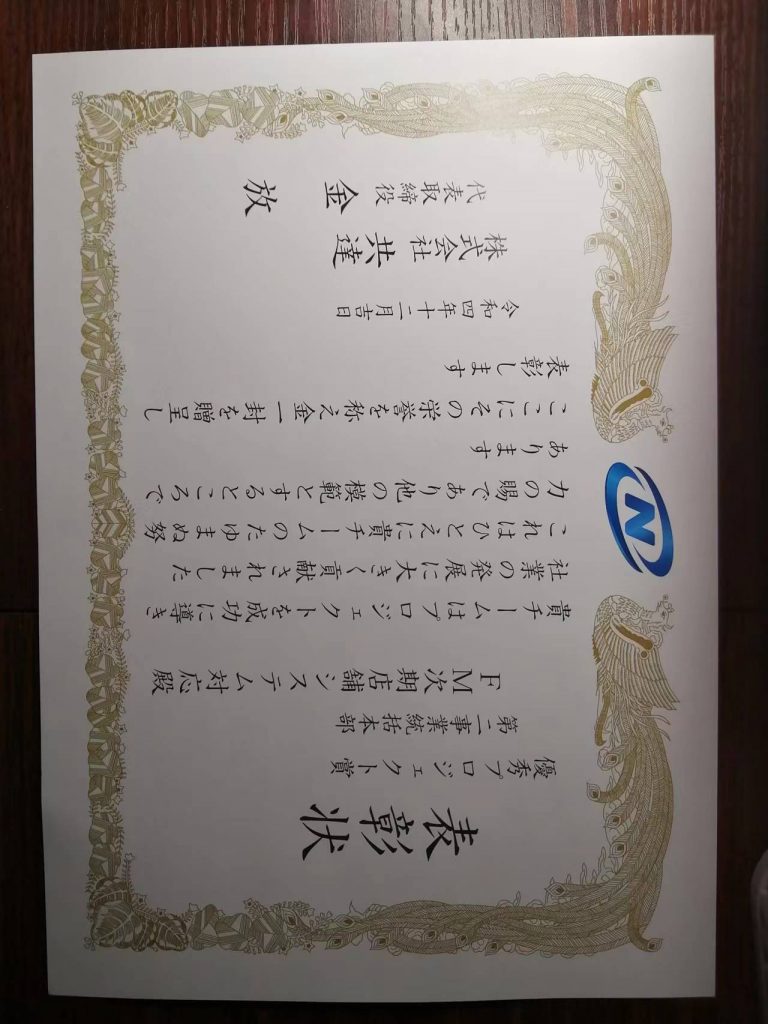 表彰状
優秀プロジェクト賞
第二事業統括本部
FM次期店舗システム対応殿
貴チームはプロジェクトを成功に導き
社業の発展に大きく貢献されました
これはひとえに貴チームのたゆまぬ努
力の賜であり他の模範とするところで
あります
ここにその栄誉を称え金一封を贈呈し
表彰します
令和四年十二月吉日
株式会社共達
代表取締役 金 放
N